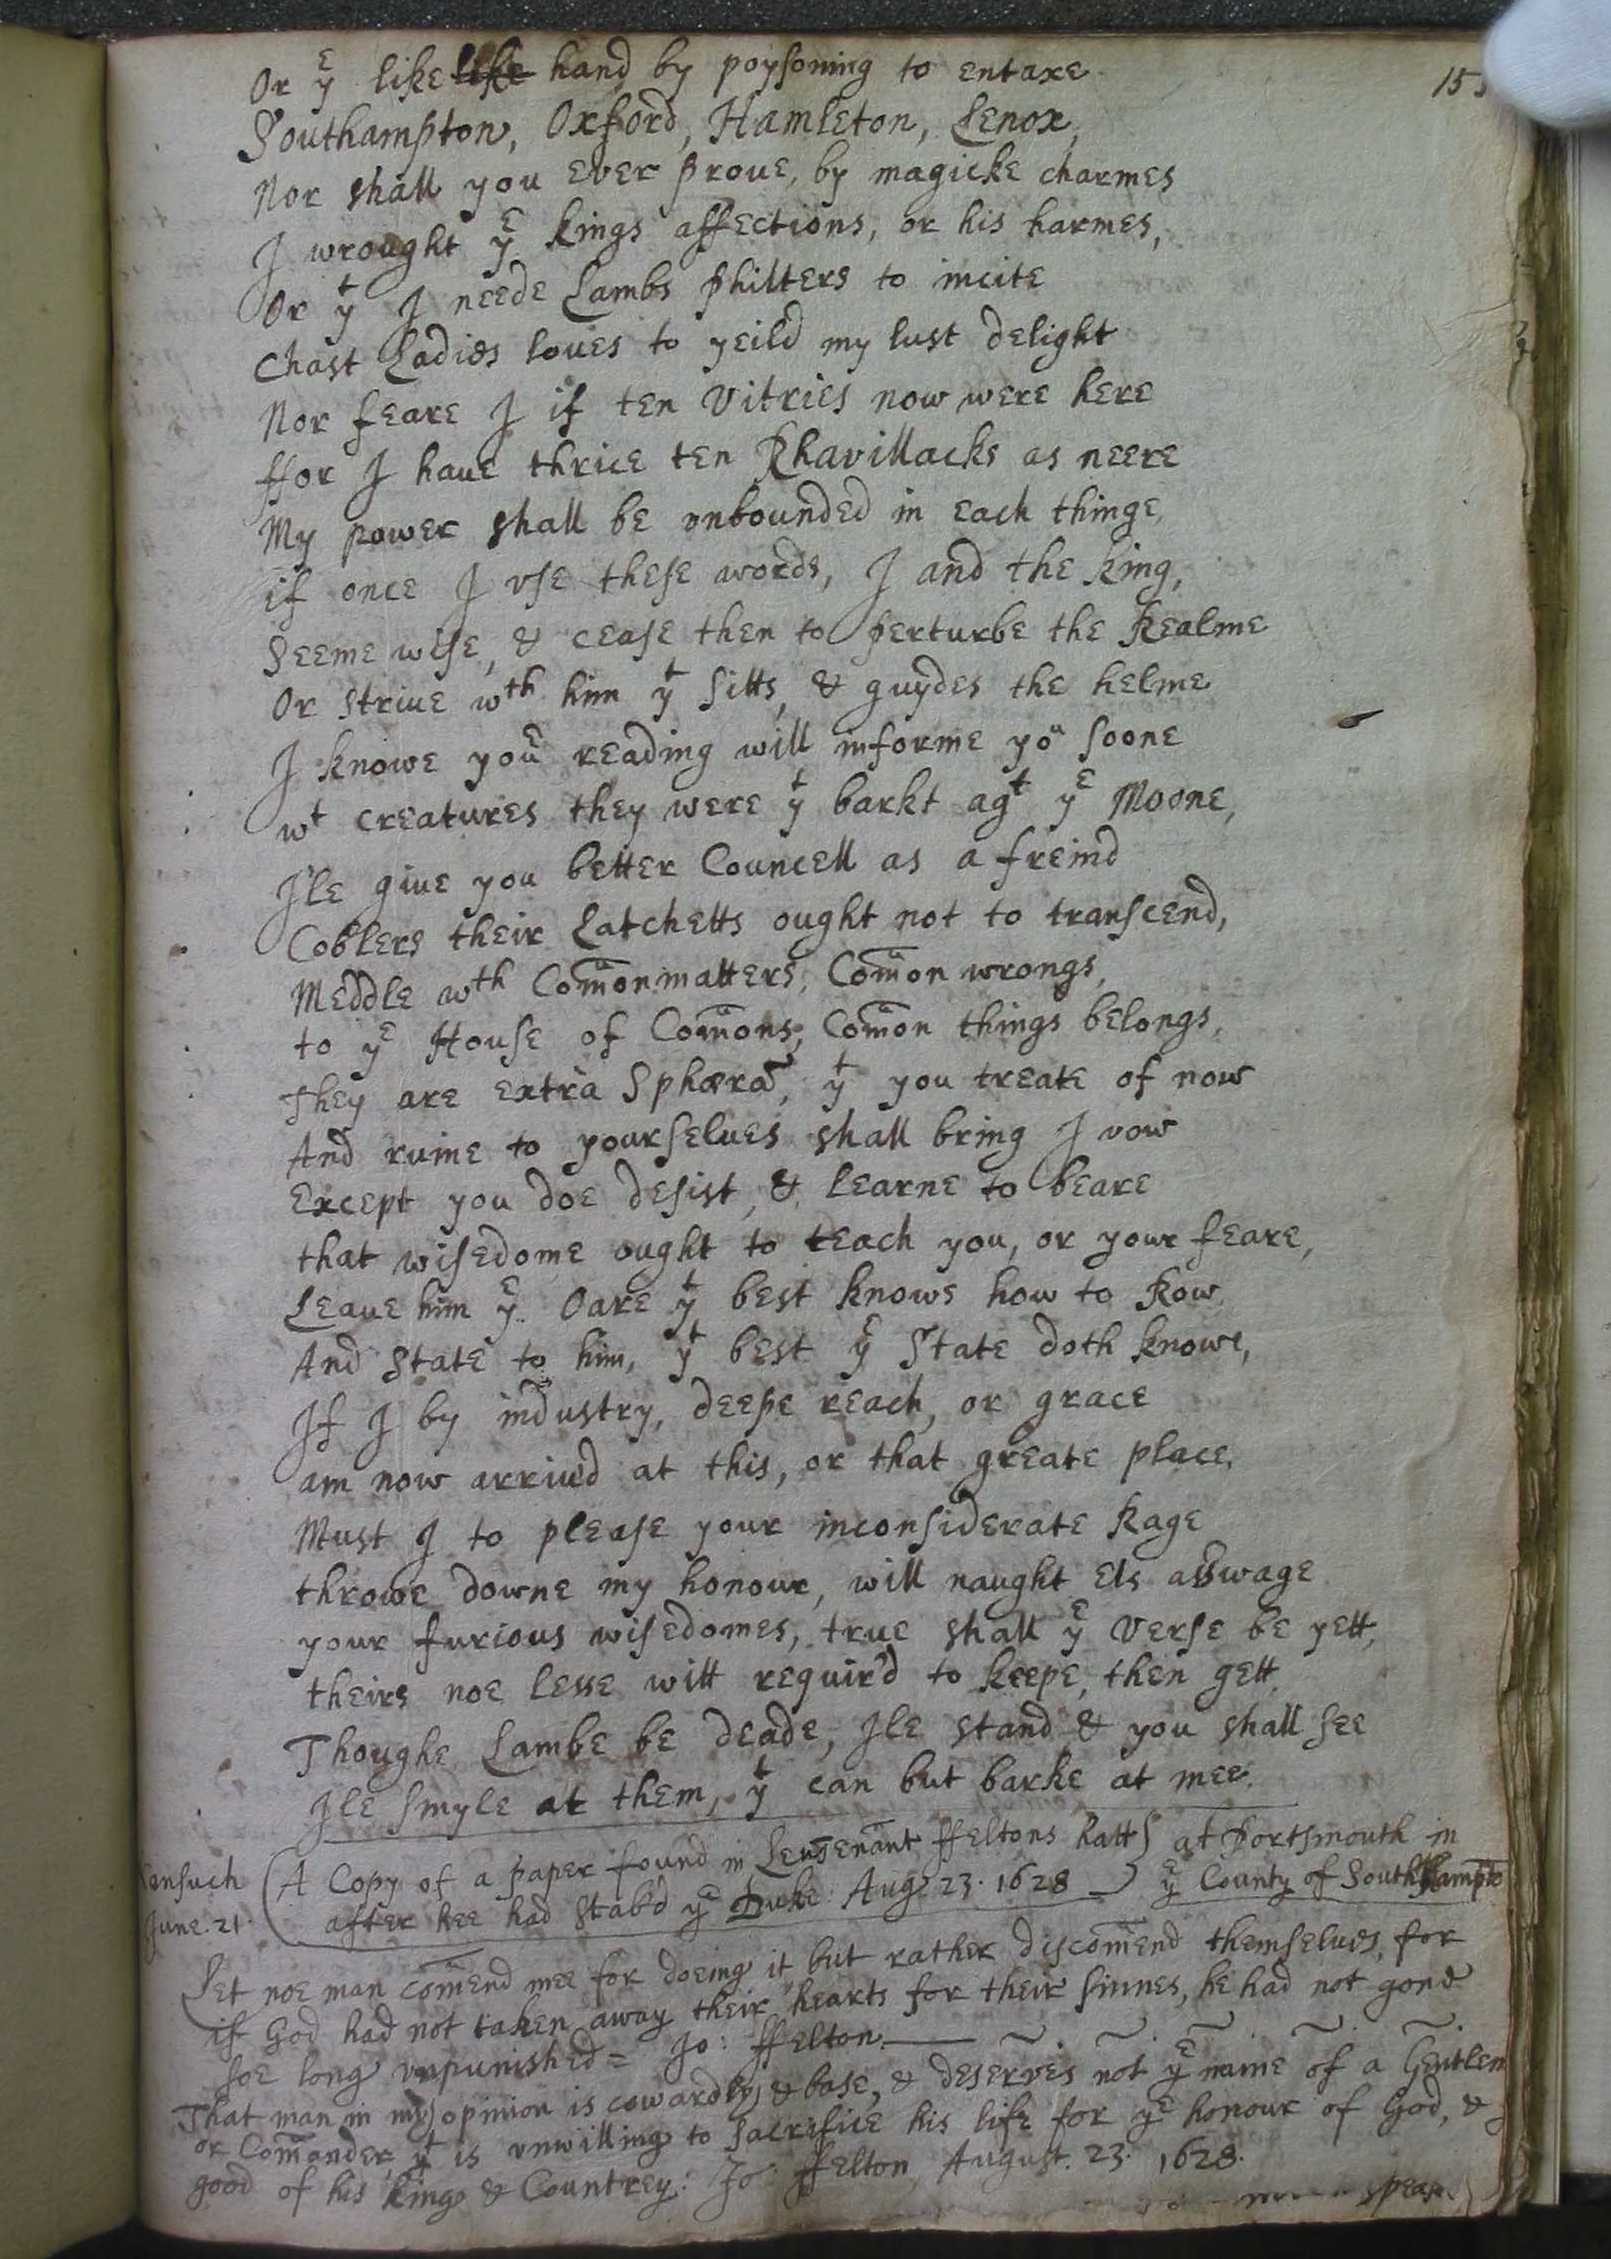 155
Or yͤ like like hand by poysoning to entaxe
Southampton, Oxford, Hamleton, Lenox,
Nor shall you ever proue, by magicke charmes
I wrought yͤ kings affections, or his harmes,
Or yͭ I neede Lambs philters to incite
Chast Ladies loues to yeild my lust delight
Nor feare I if ten Vitries now were here
ffor I haue thrice ten Rhavillacks as neere
My power shall be vnbounded in each thinge,
if once I vse these words, I and the king,
Seeme wise, & cease then to perturbe the Realme
Or striue wth him yͭ sitts, & guydes the helme
I knowe youͬ reading will informe yoͧ soone
wt creatures they were yͭ barkt agt yͤ Moone,
I'le giue you better Councell as a freind
Coblers their Latchetts ought not to transcend,
Meddle wth Com̄on matters, Com̄on wrongs,
to yͤ House of Com̄ons, Com̄on things belongs,
They are extra Sphæra, yͭ you treate of now
And ruine to yourselues shall bring I vow
Except you doe desist, & learne to beare
that wisedome ought to teach you, or your feare,
Leaue him yͤ Oare yͭ best knows how to Row
And State to him, yͭ best yͤ State doth knowe,
If I by industry, deepe reach, or grace
am now arriu'd at this, or that greate place,
Must I to please your inconsiderate Rage
throwe downe my honour, will naught Els asswage
your furious wisedomes, true shall yͤ Verse be yett,
theirs noe lesse witt requir'd to keepe, then gett,
Thoughe Lambe be deade, Ile stand & you shall see
Ile smyle at them, yͭ can but barke at mee.
A Copy of a paper found in Leuienant ffeltons hatt at Portsmouth in
after hee had stab'd yͤ Duke: Aug: 23. 1628 yͤ County of Southhampto
June. 21
Let noe man com̄end mee for doeing it but rather discom̄end themselues, for
if God had not taken away their hearts for their sinnes, he had not gone
soe long vnpunished = Jo: ffelton
That man in my opinion is cowardly & base, & deserves not yͤ name of a Gentlem
or Com̄ander yͭ is vnwilling to sacrifice his life for yͤ honour of God, &
good of his king & Countrey: Jo: ffelton August. 23. 1628.